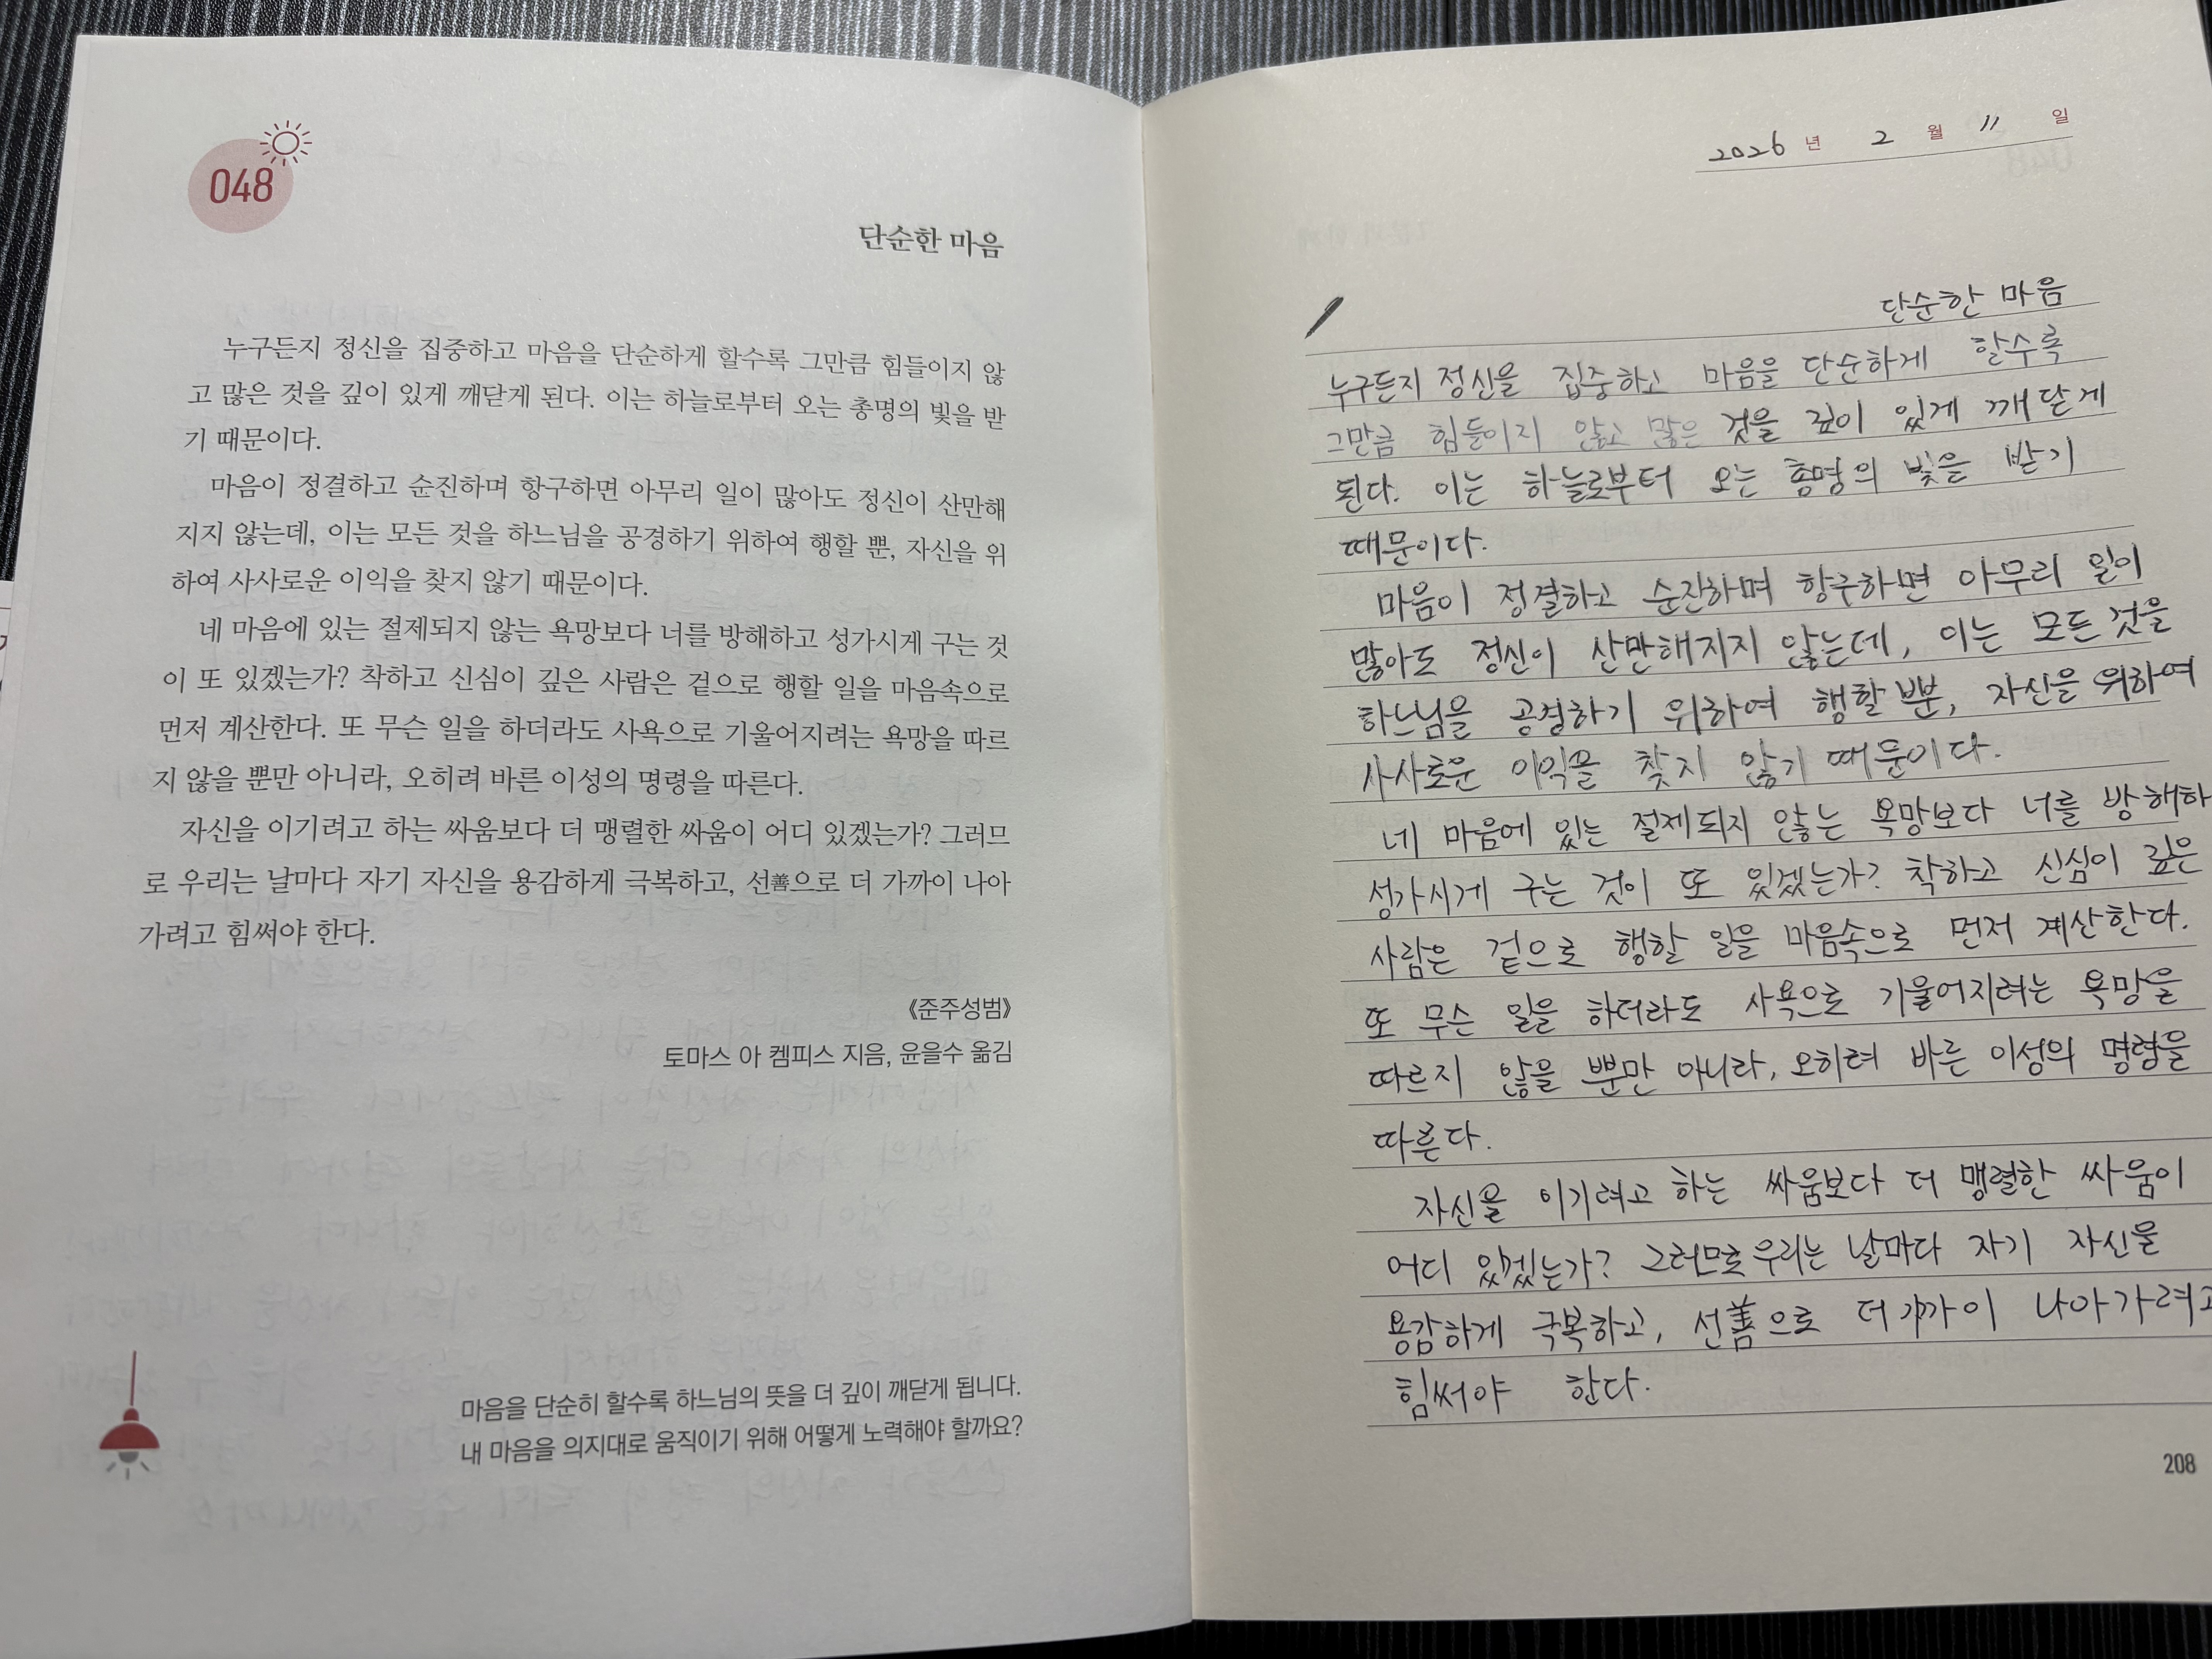 048
단순한 마음
누구든지 정신을 집중하고 마음을 단순하게 할수록 그만큼 힘들이지 않
고 많은 것을 깊이 있게 깨닫게 된다. 이는 하늘로부터 오는 총명의 빛을 받
기 때문이다.
마음이 정결하고 순진하며 항구하면 아무리 일이 많아도 정신이 산만해
지지 않는데, 이는 모든 것을 하느님을 공경하기 위하여 행할 뿐, 자신을 위
하여 사사로운 이익을 찾지 않기 때문이다.
네 마음에 있는 절제되지 않는 욕망보다 너를 방해하고 성가시게 구는 것
이 또 있겠는가? 착하고 신심이 깊은 사람은 겉으로 행할 일을 마음속으로
먼저 계산한다. 또 무슨 일을 하더라도 사욕으로 기울어지려는 욕망을 따르
지 않을 뿐만 아니라, 오히려 바른 이성의 명령을 따른다.
자신을 이기려고 하는 싸움보다 더 맹렬한 싸움이 어디 있겠는가? 그러므
로 우리는 날마다 자기 자신을 용감하게 극복하고, 선善으로 더 가까이 나아
가려고 힘써야 한다.
《준주성범》
토마스 아 켐피스 지음, 윤을수 옮김
마음을 단순히 할수록 하느님의 뜻을 더 깊이 깨닫게 됩니다.
내 마음을 의지대로 움직이기 위해 어떻게 노력해야 할까요?
2026 년 2 월 11 일
단순한 마음
누구든지 정신을 집중하고 마음을 단순하게 할수록
그만큼 힘들이지 않고 많은 것을 깊이 있게 깨닫게
된다. 이는 하늘로부터 오는 총명의 빛을 받기
때문이다.
마음이 정결하고 순진하며 항구하면 아무리 일이
많아도 정신이 산만해지지 않는데, 이는 모든 것을
하느님을 공경하기 위하여 행할 뿐, 자신을 위하여
사사로운 이익을 찾지 않기 때문이다.
네 마음에 있는 절제되지 않는 욕망보다 너를 방해하
성가시게 구는 것이 또 있겠는가? 착하고 신심이 깊은
사람은 겉으로 행할 일을 마음속으로 먼저 계산한다.
또 무슨 일을 하더라도 사욕으로 기울어지려는 욕망을
따르지 않을 뿐만 아니라, 오히려 바른 이성의 명령을
따른다.
자신을 이기려고 하는 싸움보다 더 맹렬한 싸움이
어디 있겠는가? 그러므로 우리는 날마다 자기 자신을
용감하게 극복하고, 선善으로 더 가까이 나아가려고
힘써야 한다.
208